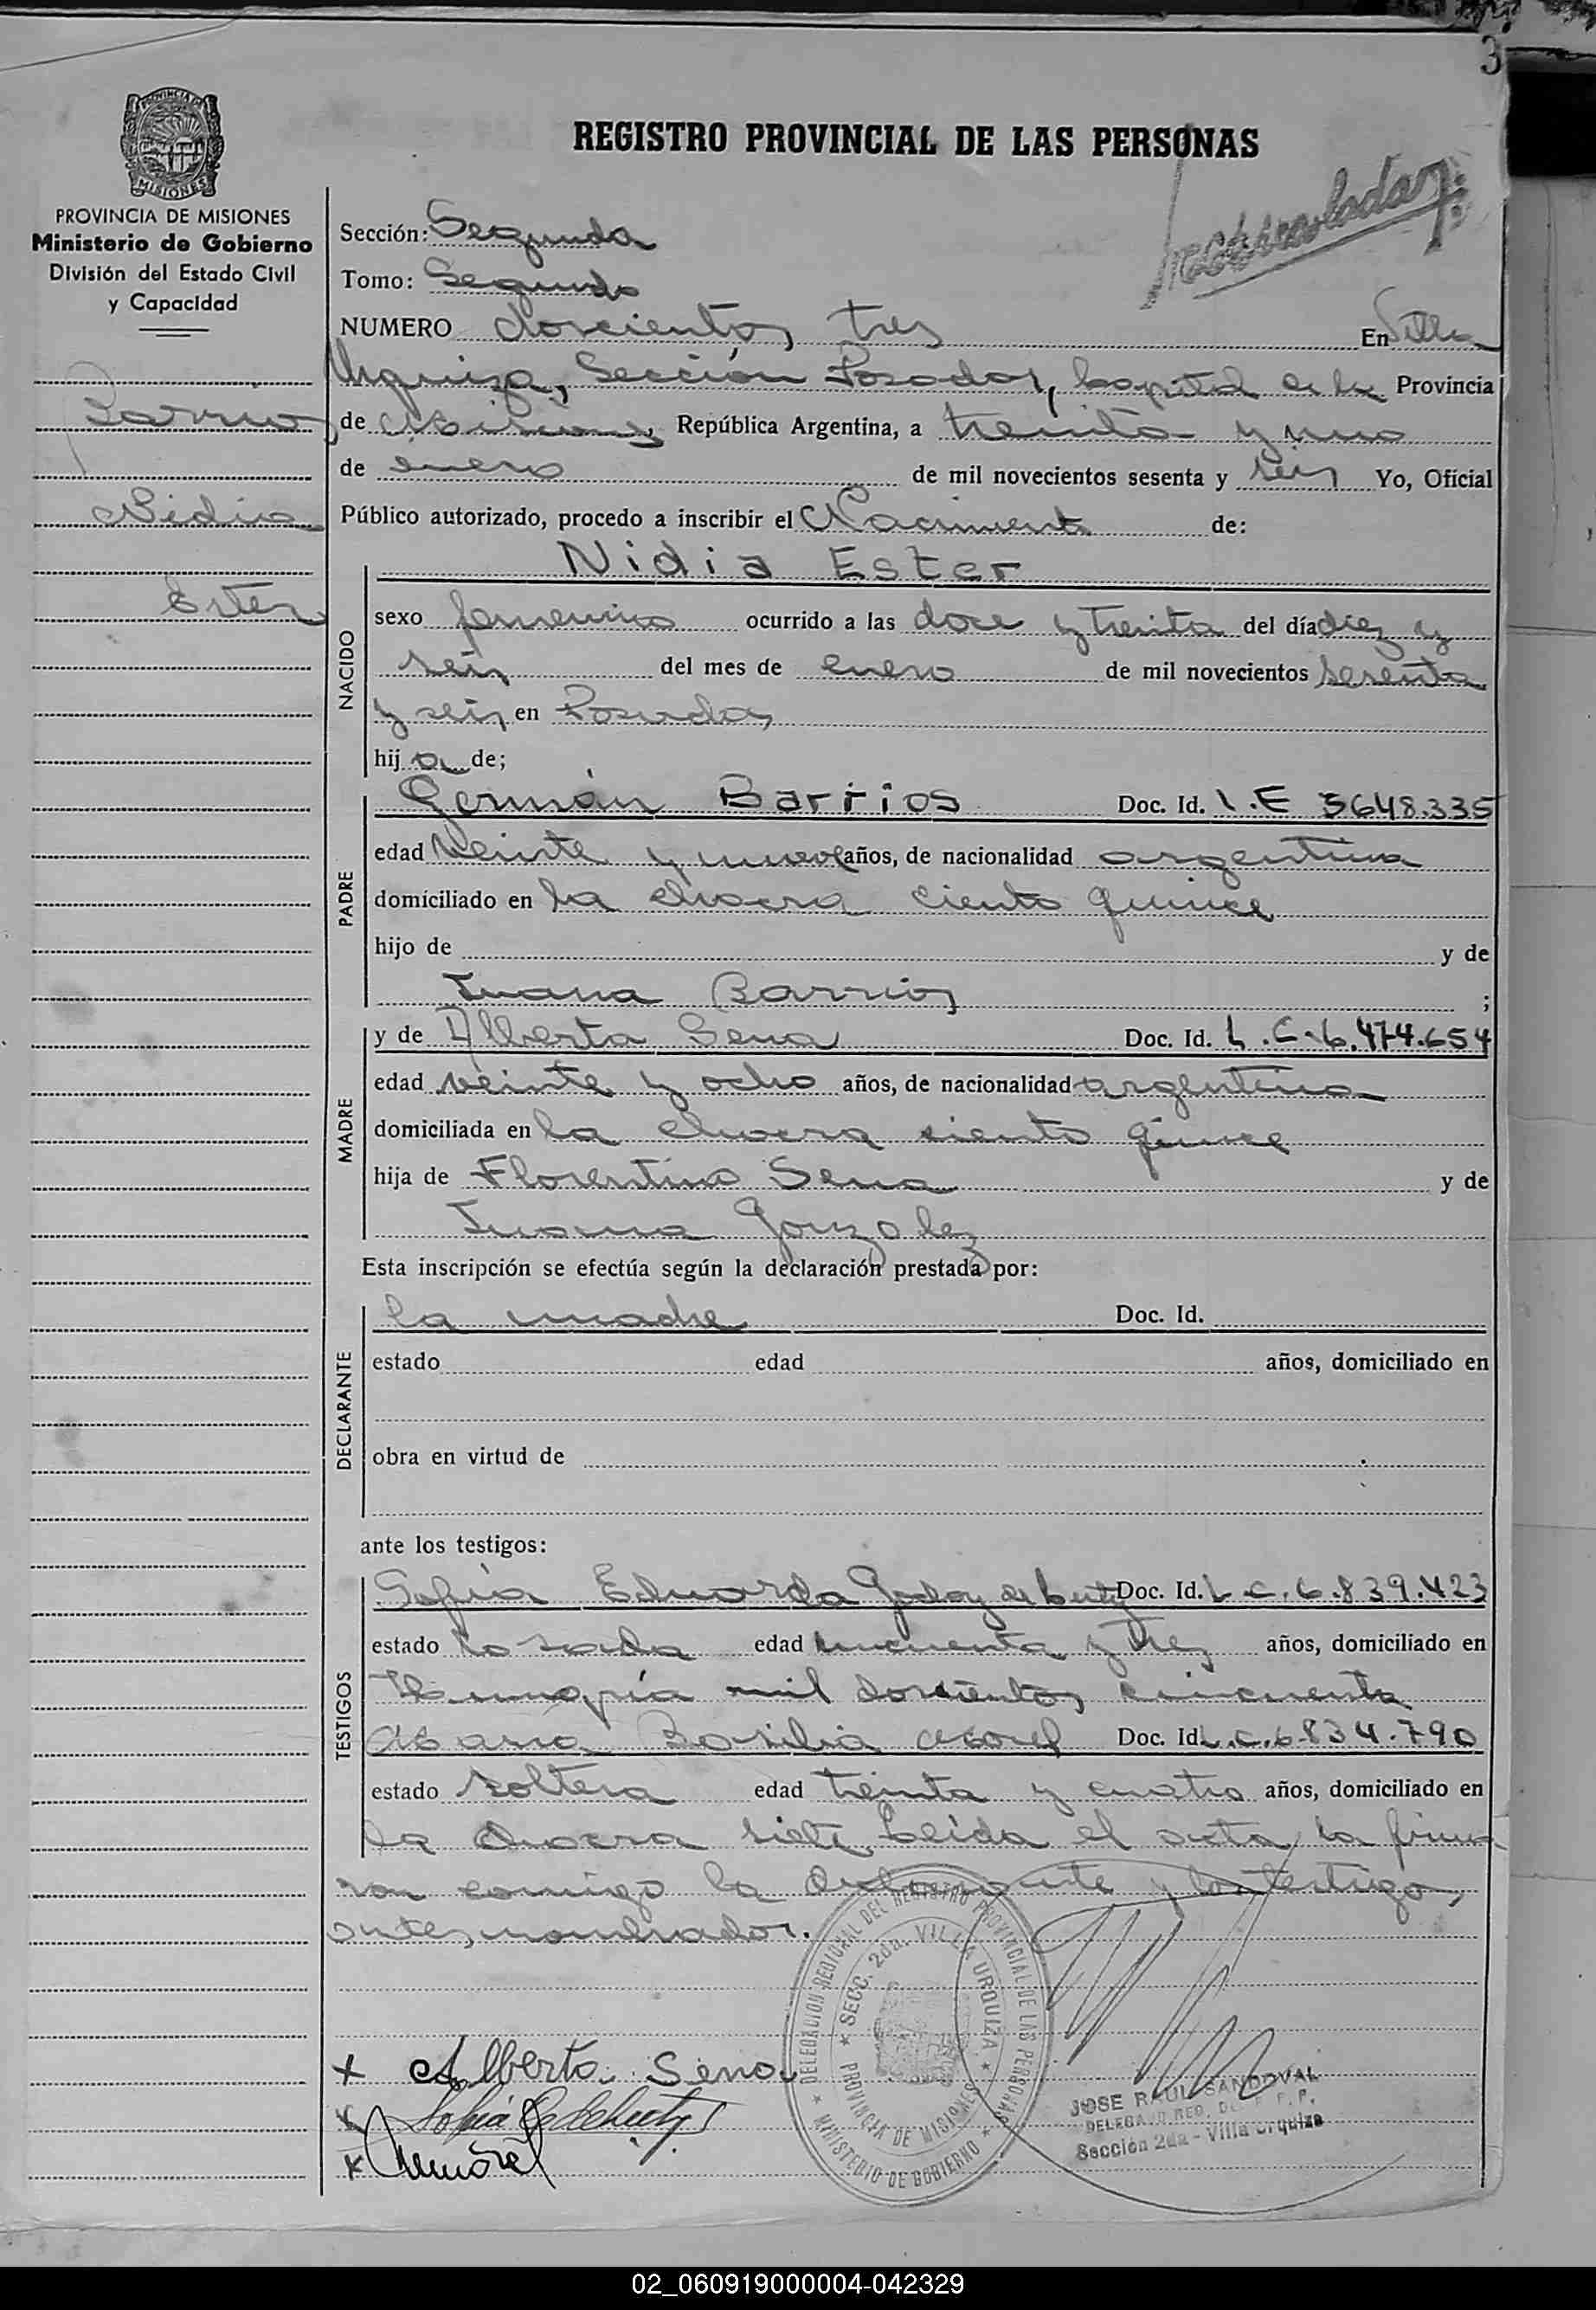 3
REGISTRO PROVINCIAL DE LAS PERSONAS
PROVINCIA DE MISIONES
Ministerio de Gobierno
División del Estado Civil
y Capacidad
Barrios
Nidia
Ester
Sección: Segunda
Tomo: Segundo
NUMERO doscientos tres En Villa
Urquiza, Sección Posadas, Capital de la Provincia
de Misiones, República Argentina, a treinta y uno
de enero de mil novecientos sesenta y seis Yo, Oficial
Público autorizado, procedo a inscribir el Nacimiento de:
NACIDO
Nidia Ester
sexo femenino ocurrido a las doce y treinta del día diez y
seis del mes de enero de mil novecientos sesenta
y seis en Posadas
hija de;
PADRE
Germán Barrios Doc. Id. L.E 5648.335
edad veinte y nueve años, de nacionalidad argentina
domiciliado en la chacra ciento quince
hijo de y de
Juana Barrios ;
MADRE
y de Alberta Sena Doc. Id. L.C.6.474.654
edad veinte y ocho años, de nacionalidad argentina
domiciliada en la chacra siento quince
hija de Florentino Sena y de
Juana Gonzalez
Esta inscripción se efectúa según la declaración prestada por:
DECLARANTE
la madre Doc. Id.
estado edad años, domiciliado en
obra en virtud de
ante los testigos:
TESTIGOS
Sofía Eduarda Godoy de Doc. Id. L.C.6.839.423
estado casada edad cincuenta y tres años, domiciliado en
Hungría mil doscientos cincuenta
María Basilia Morel Doc. Id. L.C.6.834.790
estado soltera edad treinta y cuatro años, domiciliado en
la chacra siete Leída el acta, la firma
ron conmigo la declarante y los testigos,
antes nombrados.
DELEGACION REGIONAL DEL REGISTRO PROVINCIAL DE LAS PERSONAS
MINISTERIO DE GOBIERNO
SECC. 2da. VILLA URQUIZA
PROVINCIA DE MISIONES
x Alberta Sena
x Sofía
x Morel
JOSE RAUL SANDOVAL
Sección 2da - Villa Urquiza
02_060919000004-042329